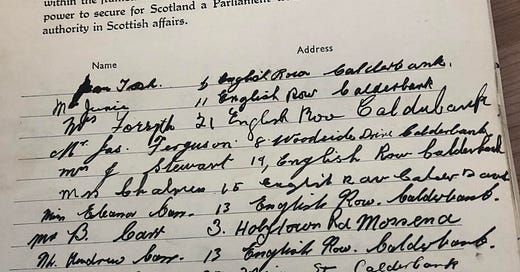 within the
power to secure for Scotland a Parliament
authority in Scottish affairs.
Name Address
6 English Row Calderbank.
11 English Row Calderbank
Mrs Forsyth 21 English Row Calderbank
Mr. Jas. Ferguson. 8. Woodside Drive Calderbank
Mrs J Stewart 19, English Row Calderbank
Mrs Chalmers 15 English Row Calderbank
Miss Eleanor 13 English Row. Calderbank.
Mr B. 3. Holytown Rd Mossend
Mr. Andrew 13 English Row. Calderbank.
St Calderbank